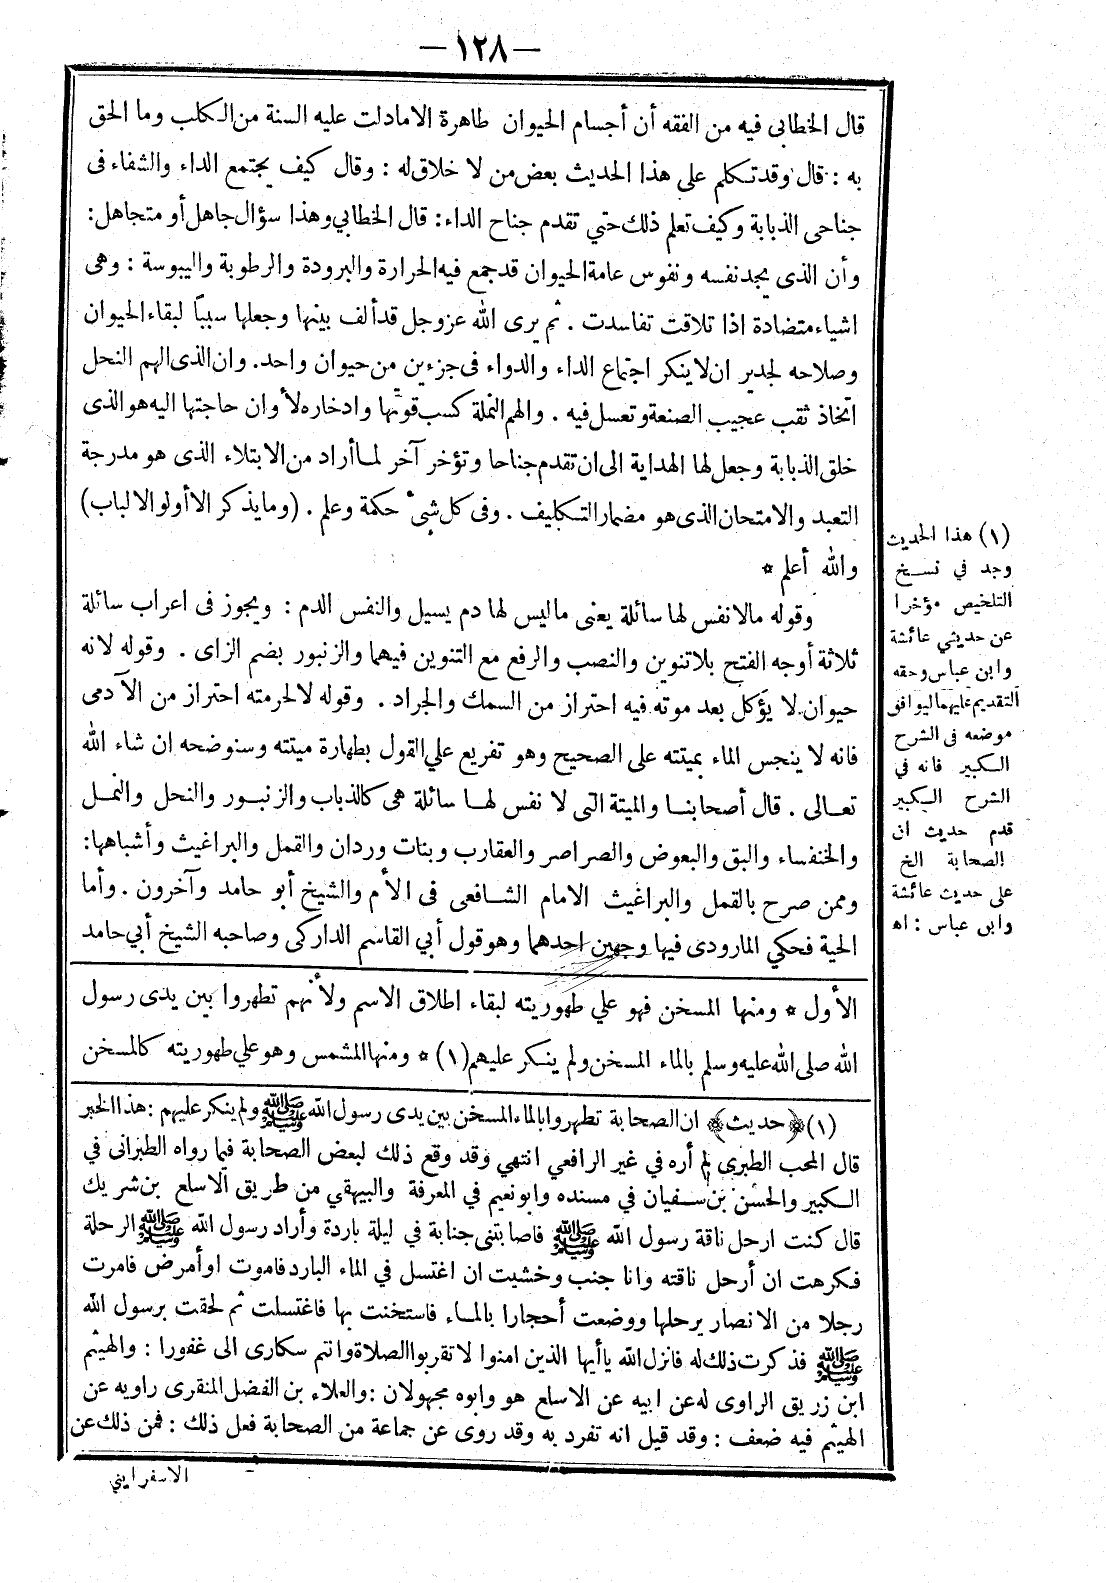 — ١٢٨ —
قال الخطابي فيه من الفقه أن أجسام الحيوان طاهرة الا مادلت عليه السنة من الكلب وما الحق
به : قال وقد تكلم على هذا الحديث بعض من لا خلاق له : وقال كيف يجتمع الداء والشفاء فى
جناحى الذبابة وكيف تعلم ذلك حتي تقدم جناح الداء: قال الخطابي وهذا سؤال جاهل أو متجاهل:
وأن الذى يجد نفسه ونفوس عامة الحيوان قد جمع فيه الحرارة والبرودة والرطوبة واليبوسة : وهى
اشياء متضادة اذا تلاقت تفاسدت . ثم يرى الله عز وجل قد ألف بينها وجعلها سبباً لبقاء الحيوان
وصلاحه لجدير ان لا ينكر اجتماع الداء والدواء فى جزءين من حيوان واحد. وان الذى الهم النحل
اتخاذ ثقب عجيب الصنعة وتعسل فيه . والهم النملة كسب قوتها وادخاره لأوان حاجتها اليه هو الذى
خلق الذبابة وجعل لها الهداية الى ان تقدم جناحا وتؤخر آخر لما أراد من الابتلاء الذى هو مدرجة
التعبد والامتحان الذى هو مضمار التكليف . وفى كل شىء حكمة وعلم . (وما يذكر الا أولو الالباب)
والله أعلم *
وقوله مالانفس لها سائلة يعنى ماليس لها دم يسيل والنفس الدم : ويجوز فى اعراب سائلة
ثلاثة أوجه الفتح بلا تنوين والنصب والرفع مع التنوين فيهما والزنبور بضم الزاى . وقوله لانه
حيوان لا يؤكل بعد موته فيه احتراز من السمك والجراد . وقوله لا لحرمته احتراز من الآدمى
فانه لا ينجس الماء بميتته على الصحيح وهو تفريع علي القول بطهارة ميتته وسنوضحه ان شاء الله
تعالى . قال أصحابنا والميتة التى لا نفس لها سائلة هى كالذباب والزنبور والنحل والنمل
والخنفساء والبق والبعوض والصراصر والعقارب وبنات وردان والقمل والبراغيث وأشباهها:
وممن صرح بالقمل والبراغيث الامام الشافعى فى الأم والشيخ أبو حامد وآخرون . وأما
الحية فحكي الماوردى فيها وجهين احدهما وهو قول أبي القاسم الداركى وصاحبه الشيخ أبي حامد
(١) هذا الحديث
وجد في نسخ
التلخيص مؤخرا
عن حديثي عائشة
وابن عباس وحقه
التقديم عليهما ليوافق
موضعه فى الشرح
الكبير فانه في
الشرح الكبير
قدم حديث ان
الصحابة الخ
على حديث عائشة
وابن عباس : اه
الأول * ومنها المسخن فهو علي طهوريته لبقاء اطلاق الاسم ولأنهم تطهروا بين يدى رسول
الله صلى الله عليه وسلم بالماء المسخن ولم ينكر عليهم (١) * ومنها المشمس وهو علي طهوريته كالمسخن
(١) ﴿حديث﴾ ان الصحابة تطهروا بالماء المسخن بين يدى رسول الله ﷺ ولم ينكر عليهم : هذا الخبر
قال المحب الطبرى لم أره في غير الرافعي انتهي وقد وقع ذلك لبعض الصحابة فيما رواه الطبرانى في
الكبير والحسن بن سفيان في مسنده وابو نعيم في المعرفة والبيهقي من طريق الاسلع بن شريك
قال كنت ارحل ناقة رسول الله ﷺ فاصابتنى جنابة في ليلة باردة وأراد رسول الله ﷺ الرحلة
فكرهت ان أرحل ناقته وانا جنب وخشيت ان اغتسل في الماء البارد فاموت او أمرض فامرت
رجلا من الانصار يرحلها ووضعت أحجارا بالماء فاستخنت بها فاغتسلت ثم لحقت برسول الله
ﷺ فذكرت ذلك له فانزل الله يا أيها الذين امنوا لا تقربوا الصلاة وانتم سكارى الى غفورا : والهيثم
ابن زريق الراوى له عن ابيه عن الاسلع هو وابوه مجهولان : والعلاء بن الفضل المنقرى راويه عن
الهيثم فيه ضعف : وقد قيل انه تفرد به وقد روى عن جماعة من الصحابة فعل ذلك : فمن ذلك عن
الاسفرايني